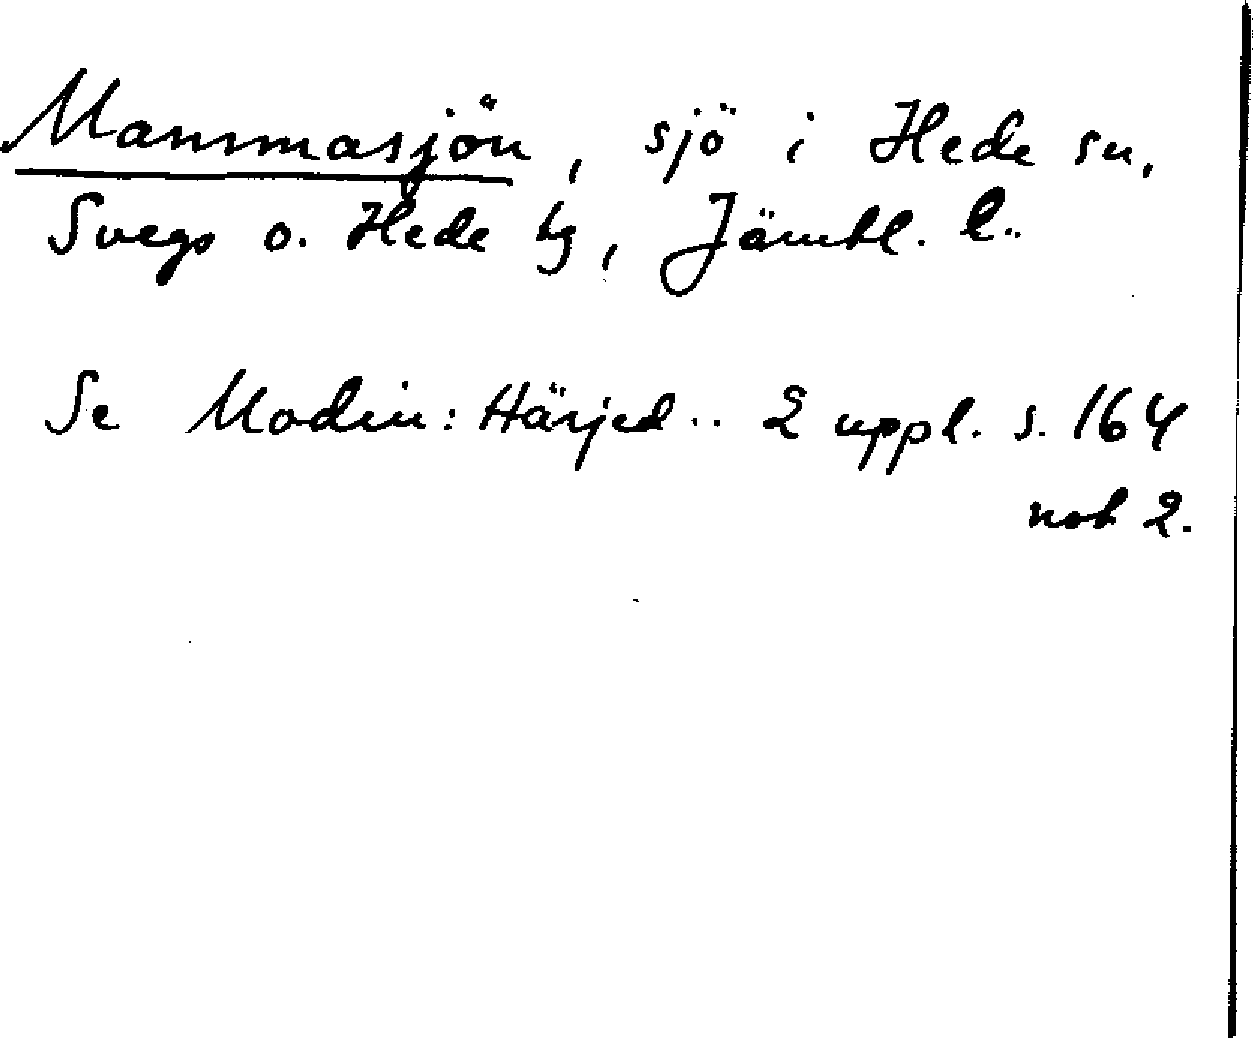 Mammasjön, sjö i Hede sn,
Svegs o. Hede tg, Jämtl. l..
Se Modin: Härjed.. 2 uppl. s. 164
not 2.